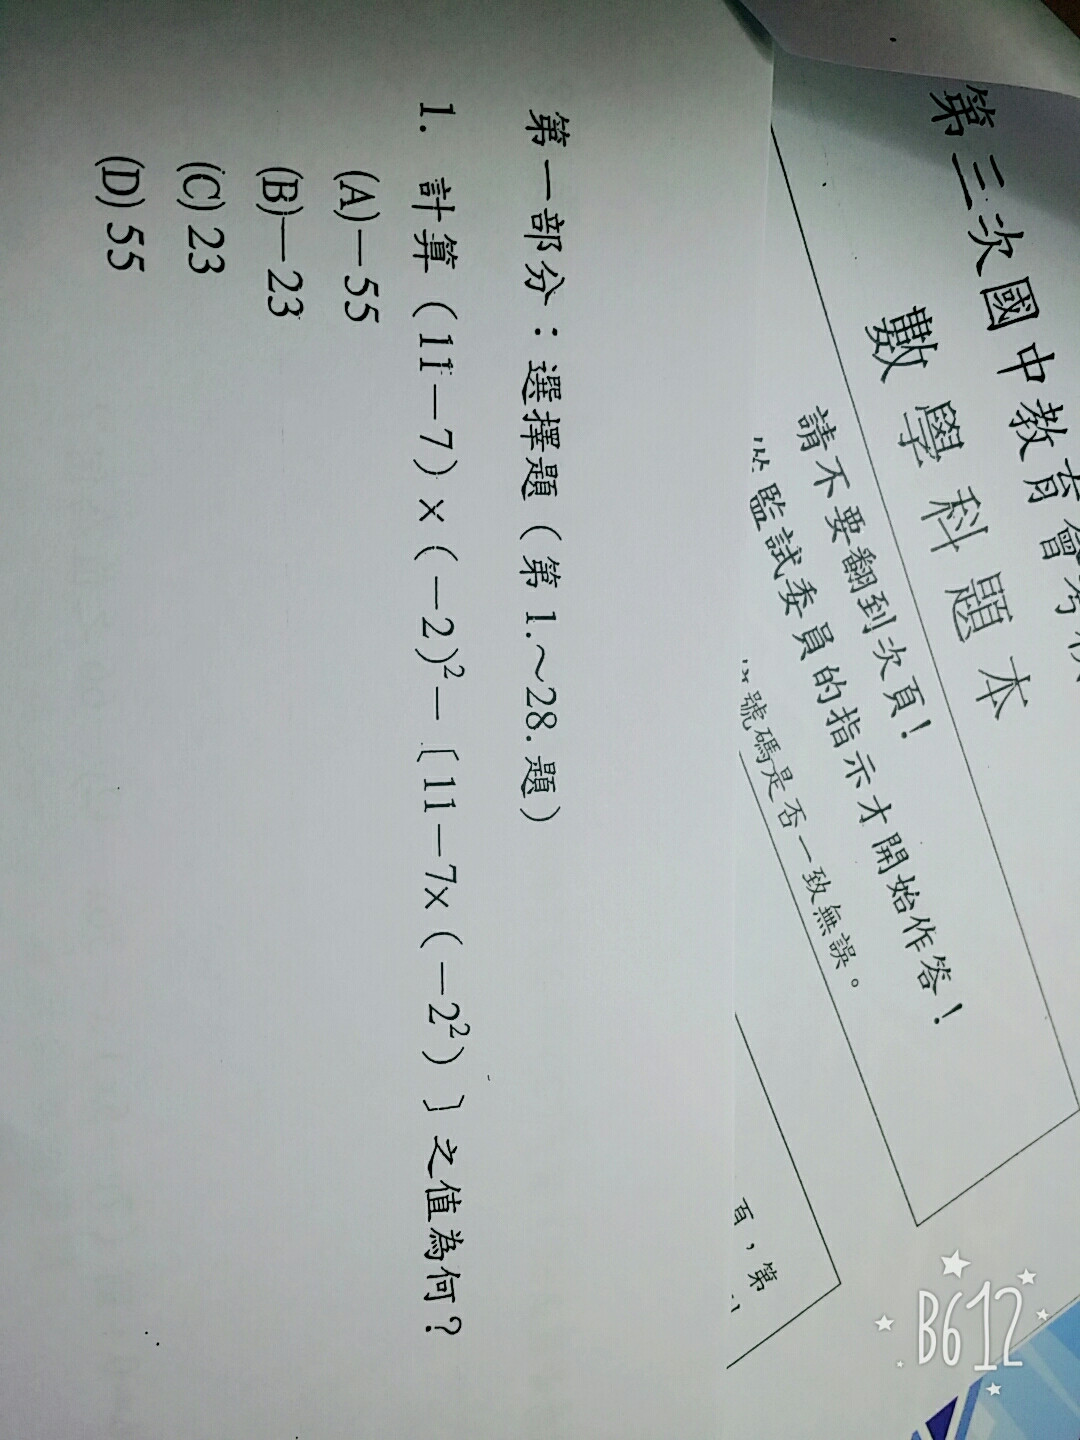 第三次國中教育會考模
數學科題本
請不要翻到次頁！
監試委員的指示才開始作答！
號碼是否一致無誤。
頁，第
第一部分：選擇題（第1.～28.題）
1. 計算（11－7）×（－2）²－〔11－7×（－2²）〕之值為何？
(A)－55
(B)－23
(C) 23
(D) 55
B612